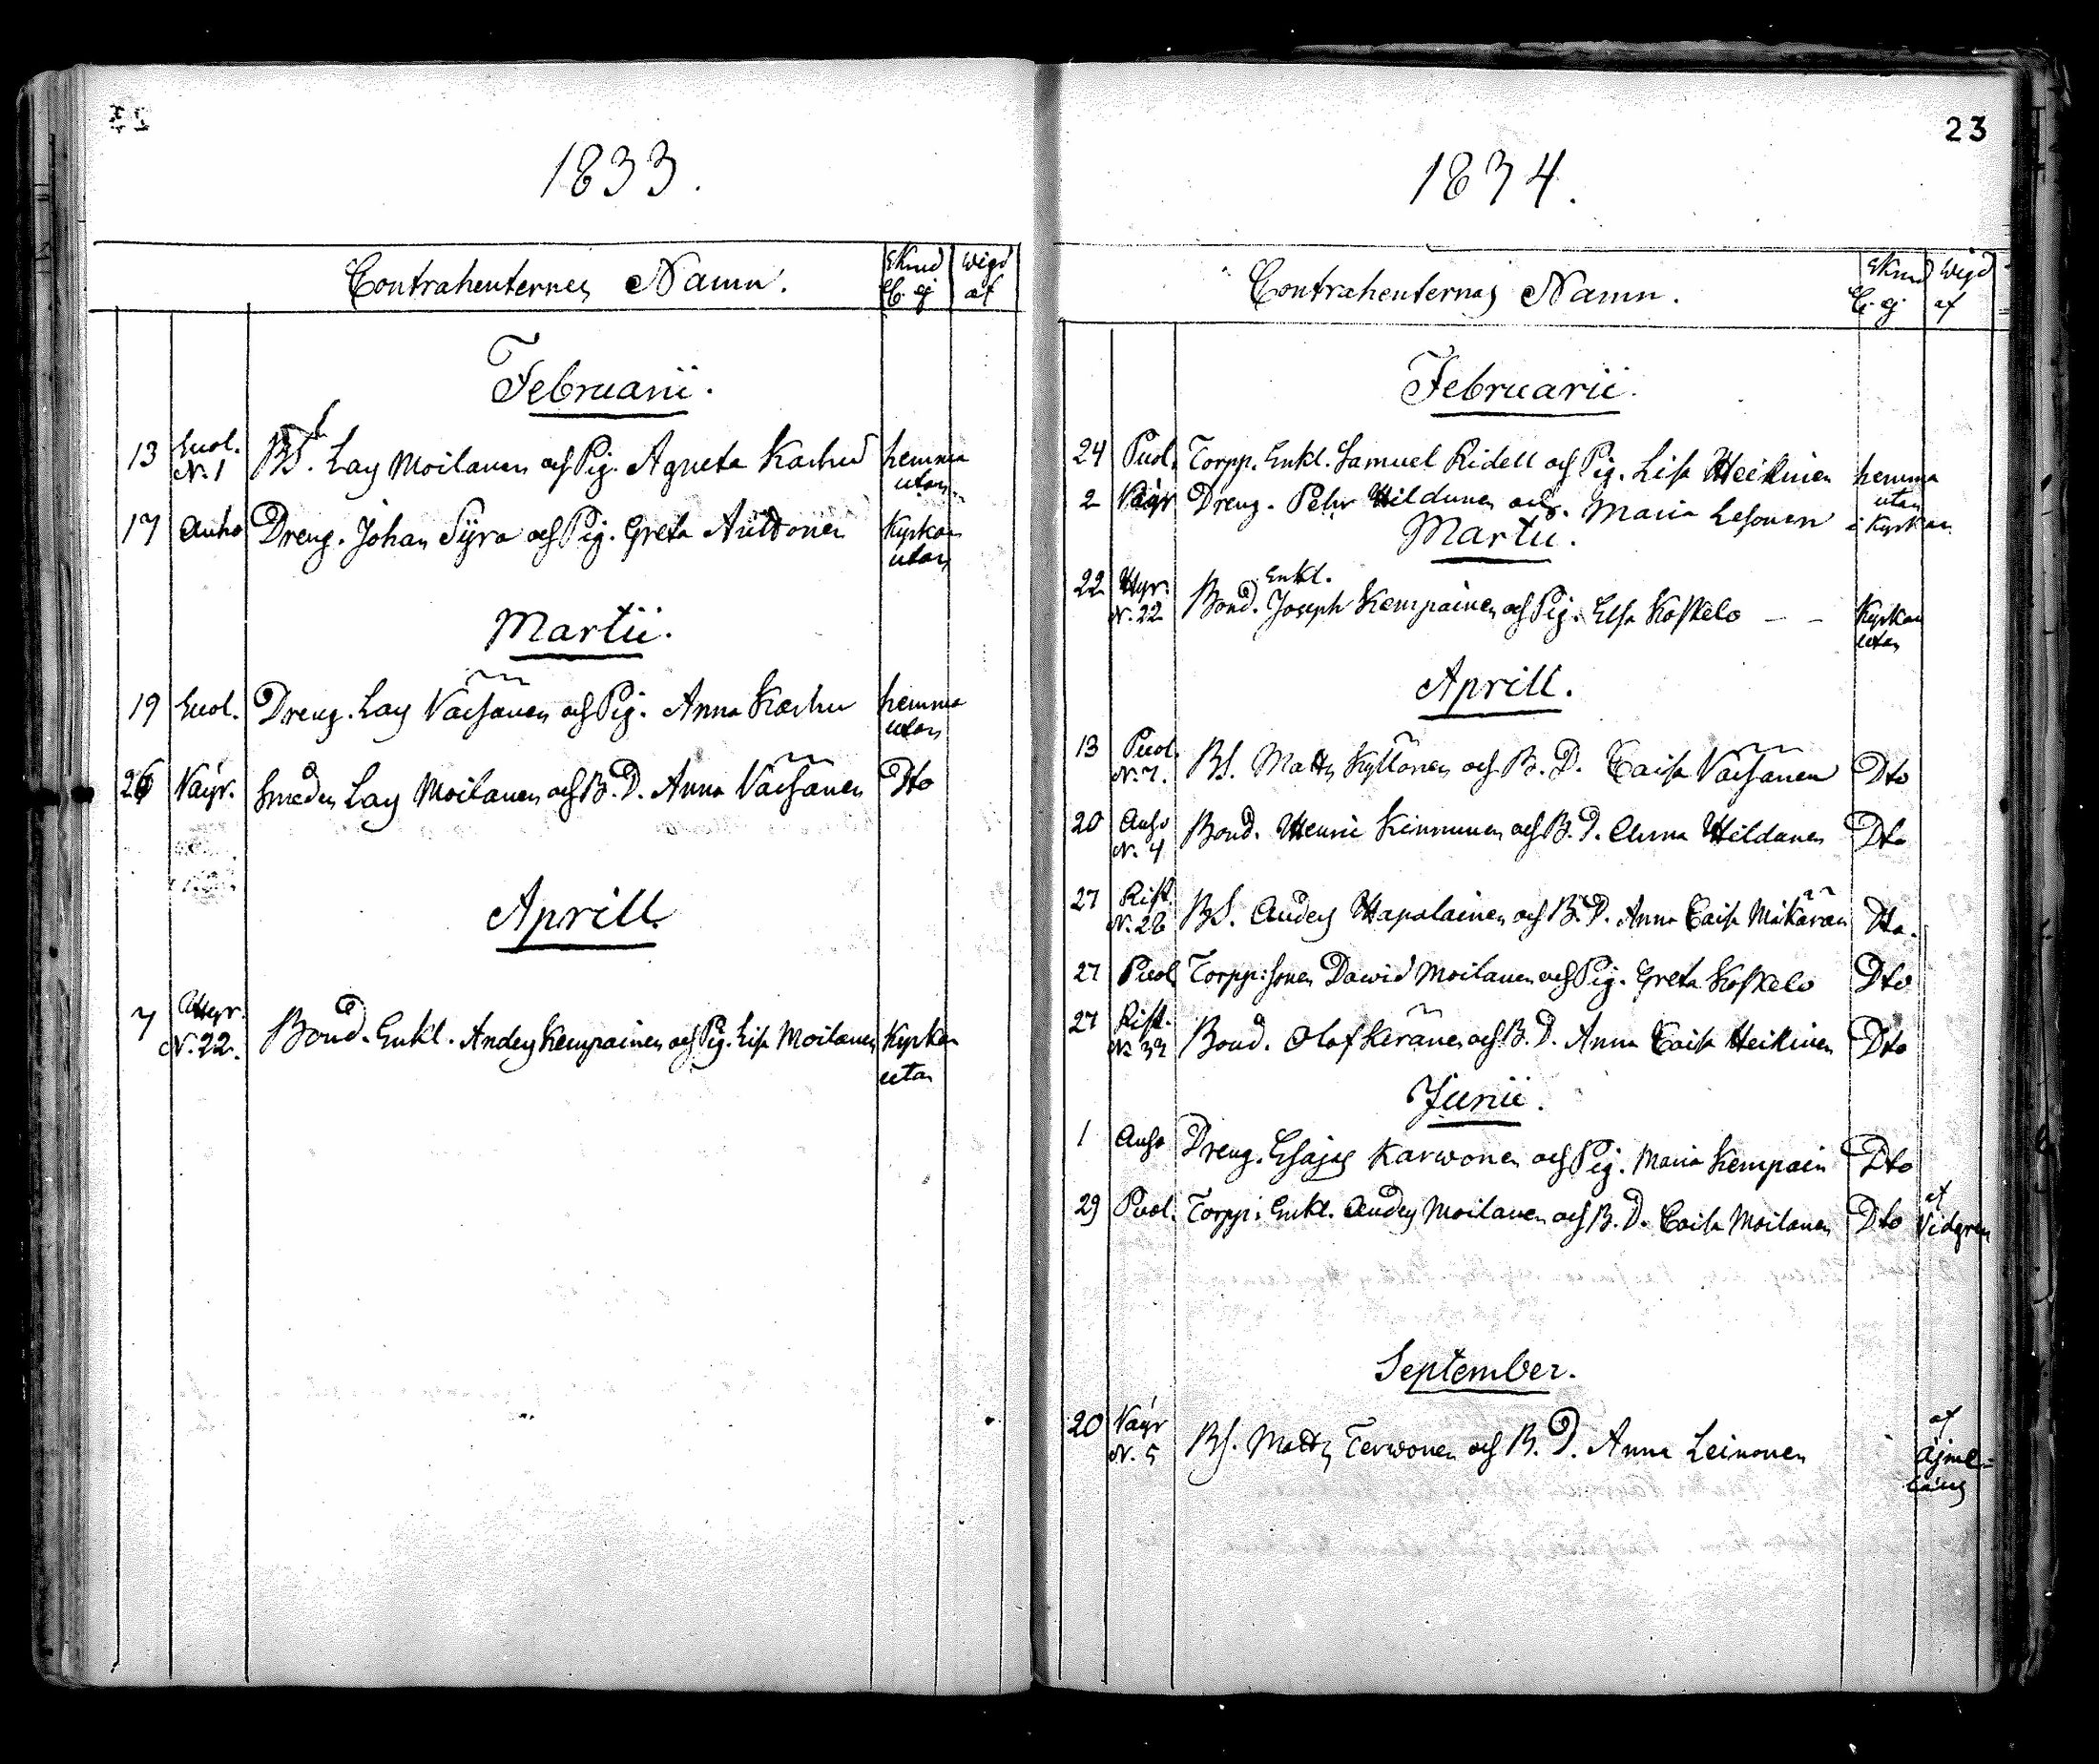 1833.
Contrahenternes Namn.
Skrud
El. ej
wigd
af
Februarii.
13 Enol. N. 1 BS. Lars Moilanen och Pig. Agneta Karhu hemma utan
17 Auho Dreng. Johan Syra och Pig. Greta Anttonen Kyrkan utan
Martii.
19 Enol. Dreng. Lars Väisänen och Pig. Anna Karhu hemma utan
26 Näyr. Smeden Lars Moilanen och B. D. Anna Väisänen Dto
Aprill.
7 Hyr. N. 22. Bond. Enkl. Anders Kempainen och Pig. Lisa Moilanen Kyrkan utan
23
1834.
Contrahenternas Namn.
Skrud
El. ej
wigd
af
Februarii.
24 Puol. Torpp. Enkl. Samuel Ridell och Pig. Lisa Heikinen hemma utan
2 Näyr Dreng. Pehr Hildunen och Maria Lesonen i Kyrkan.
Martii.
22 Hyr. N. 22 Bond. Enkl. Joseph Kempainen och Pig. Elsa Koskelo - - Kyrkan utan
Aprill.
13 Puol. N. 7. BS. Matts Kyllönen och B. D. Caisa Väisänen Dto
20 Auho N. 4 Bond. Henric Kinnunen och B. D. Anna Hildunen Dto
27 Rist. N. 28 BS. Anders Hapalainen och B. D. Anna Caisa Mikärän Dto.
27 Puol Torpp: sonen Dawid Moilanen och Pig. Greta Koskelo Dto
27 Rist. N. 39 Bond. Olof Keränen och B. D. Anna Caisa Heikinen Dto
Junii.
1 Auho Dreng. Esajas Karwonen och Pig. Maria Kempain Dto
29 Puol. Torpp: Enkl. Anders Moilanen och B. D. Caisa Moilanen Dto af Vidgren
September.
20 Näyr N. 5 BS. Matts Terwonen och B. D. Anna Leinonen af Äjme=